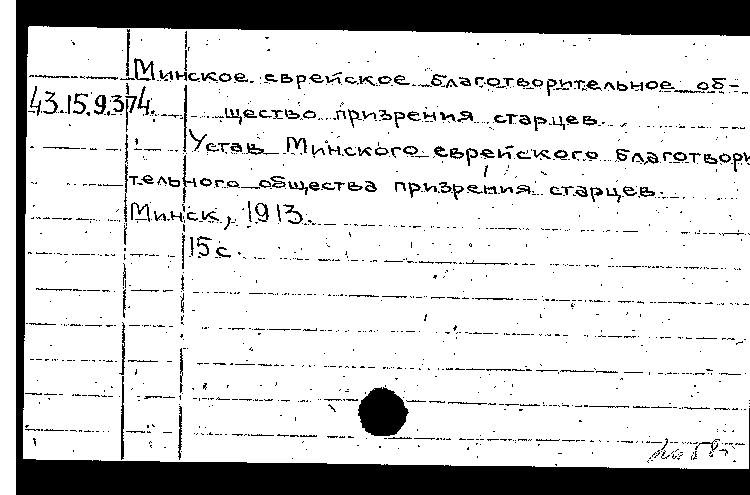 Минское еврейское благотворительное об-
43.15.9.374. щество призрения старцев.
Устав Минского еврейского благотвори
тельного общества призрения старцев.
Минск, 1913.
15 с.